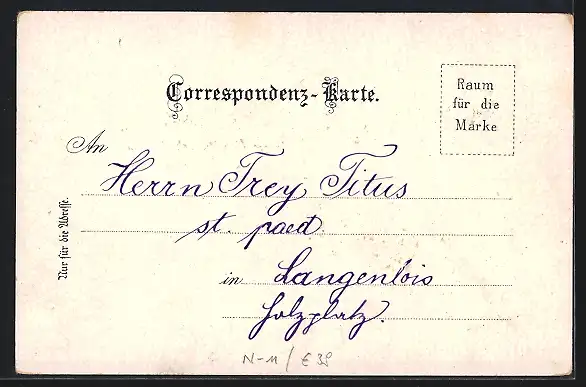 Correspondenz-Karte.
Raum
für die
Marke
An
Herrn Trey Titus
st. paed.
in Langenlois
Holzplatz.
Nur für die Adresse.
N-11/ € 39